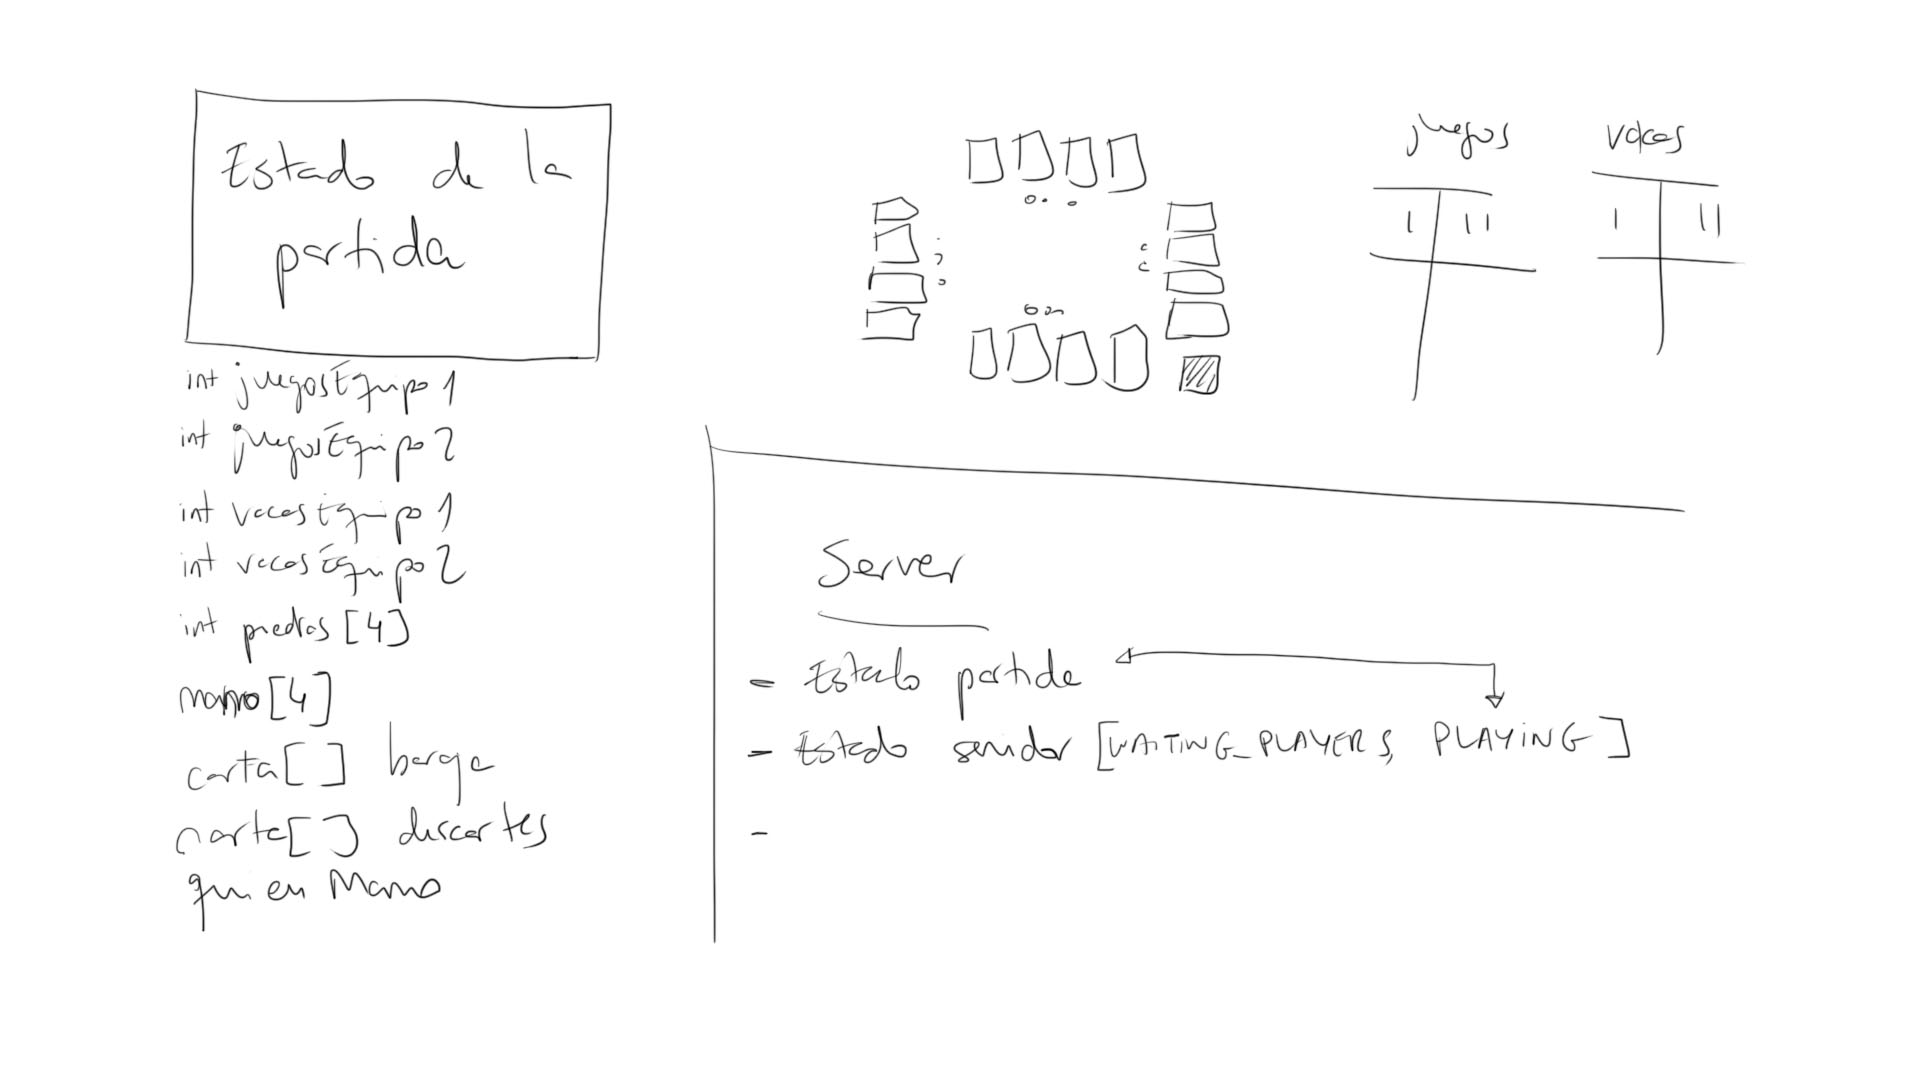 Estado de la
partida
int juegosEquipo 1
int juegosEquipo 2
int vacasEquipo 1
int vacasEquipo 2
int piedras [4]
mano [4]
carta [ ] baraja
carta [ ] descartes
quien Mano
juegos vacas
I II I II
Server
- Estado partida
- Estado servidor [WAITING_PLAYERS, PLAYING]
-